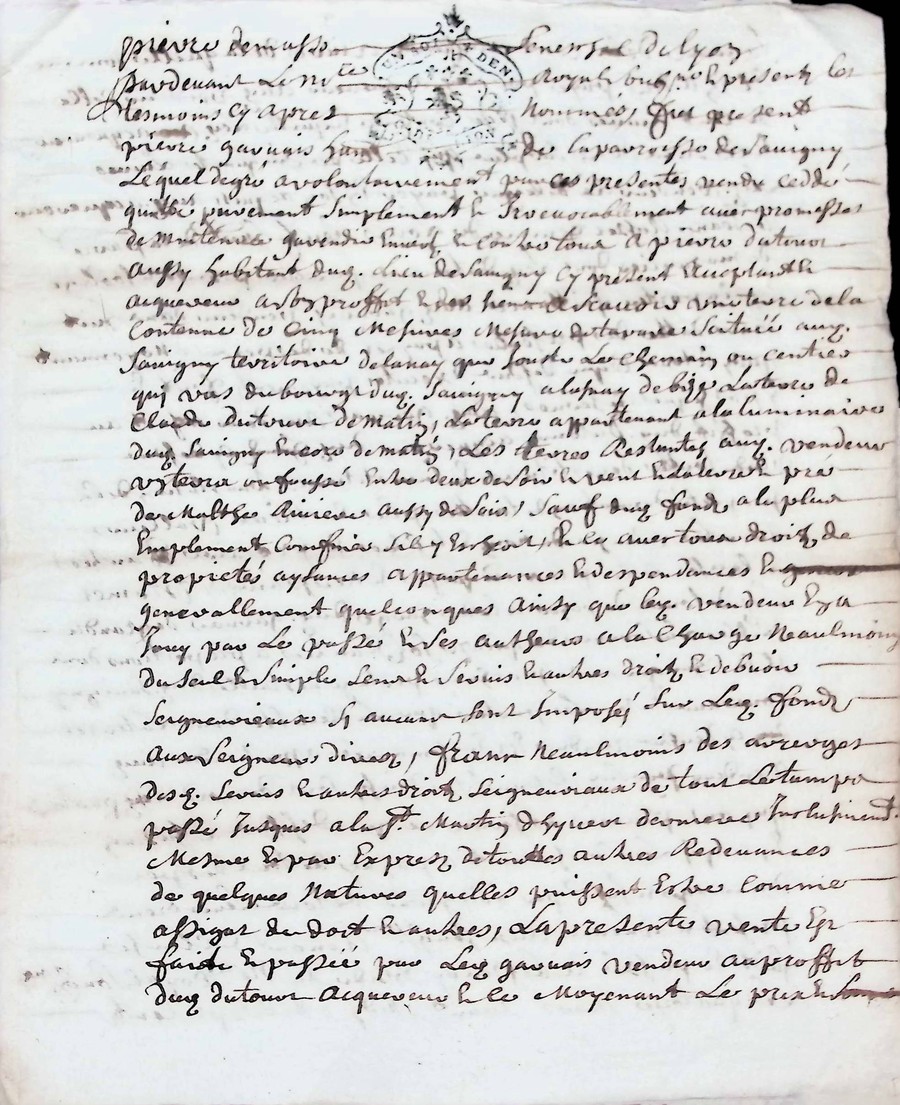 pierre demasso seneschal de lyon
Pardevant Le no.re Royal soub.né & presentz les
tesmoins cy apres Nommes, fut present
pierre garnais hab de la parroisse de Savigny
Lequel de gré a volontairement par ces presentes vendu ceddé
quitté purement simplement & Irrevocablement avec promesses
de maitenir garendir envers & contre tous a pierre dutour
aussy habitant dud. lieu de Savigny cy present & acceptant &
acquereur a son proffit & des siens a scavoir une terre de la
Contenue de Cinq Mesures Mesure de tarare Scituée aud.
Savigny territoire delanay que jouste Le Chemin ou centier
quj vas du bourg dud. Savigny a lanay de bize La terre de
Claude Dutour de matin, La terre appartenant a la luminaire
dud. Savigny Encore de matin, Les terres Restantes aud. vendeur
y terra ou fossé entre deux de Soir & vent & la terre & pré
de Malthe Riviere aussy de Soir, Sauf dud. fondz a la plus
Emplement Confiner Sil y Escheoit, & ce avec tous droitz de
proprietés aysances appartenances & despendances &
generallement quelconques Ainsy que led. vendeur En a
Jouy par Le passé & ses autheurs a la Charge Neaulmoins
du Seul & Simple Cens & Servis & autres droitz & debvoirs
Seigneuriaux Sj aucuns Sont Imposés Sur Led. fondz,
aux Seigneurs direz, franc Neaulmoins des arreyges
desd. Servis & autres droitz Seigneuriaux de tout Le temps
passé Jusques a la St. Martin dhyver derniere Inclusivement.
Mesme & par Exprez de touttes autres Redevances
de quelques Natures quelles puissent Estre Comme
assignat de doct & autres, La presente vente Est
faitte & passée par Led. garnais vendeur au proffit
dud. dutour Acquereur & ce Moyenant Le prix &